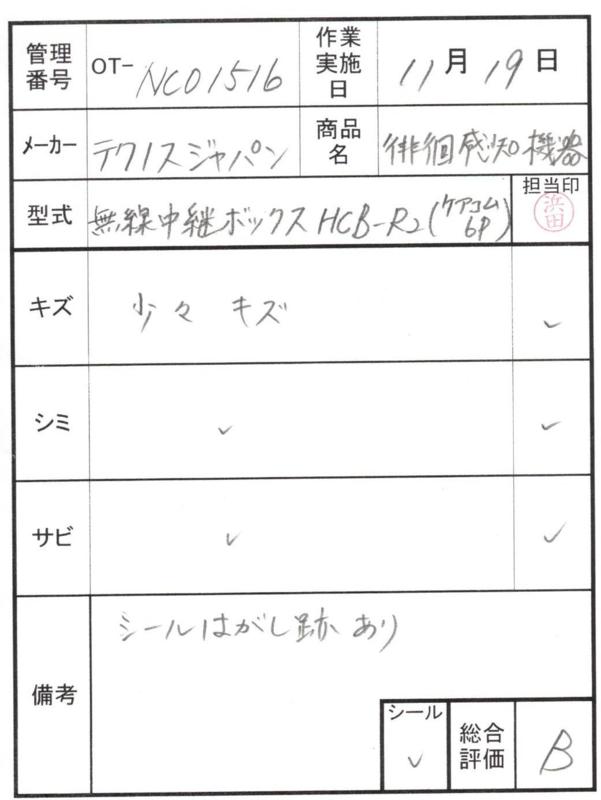 管理番号 OT- NC01516 作業実施日 11月19日
メーカー テクノスジャパン 商品名 徘徊感知機器
型式 無線中継ボックス HCB-R2(ケアコム6P) 担当印 浜田
キズ 少々 キズ ✓
シミ ✓ ✓
サビ ✓ ✓
備考 シールはがし跡あり
シール ✓ 総合評価 B